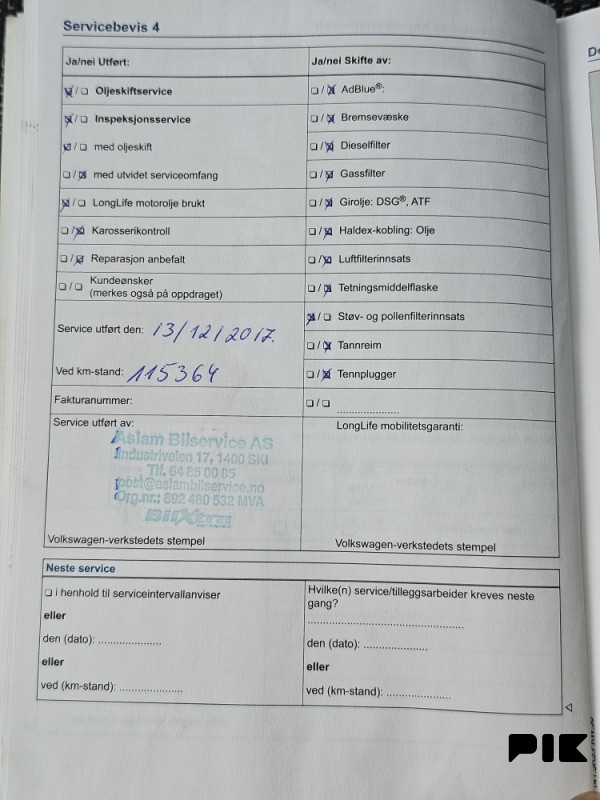 Servicebevis 4
Ja/nei Utført:
Oljeskiftservice
Inspeksjonsservice
med oljeskift
med utvidet serviceomfang
LongLife motorolje brukt
Karosserikontroll
Reparasjon anbefalt
Kundeønsker
(merkes også på oppdraget)
Service utført den: 13/12/2017.
Ved km-stand: 115364
Fakturanummer:
Ja/nei Skifte av:
AdBlue®:
Bremsevæske
Dieselfilter
Gassfilter
Girolje: DSG®, ATF
Haldex-kobling: Olje
Luftfilterinnsats
Tetningsmiddelflaske
Støv- og pollenfilterinnsats
Tannreim
Tennplugger
Service utført av:
Aslam Bilservice AS
Industriveien 17, 1400 SKI
Tlf. 64 85 00 85
post@aslambilservice.no
Org.nr.: 892 480 532 MVA
BilXtra
Volkswagen-verkstedets stempel
LongLife mobilitetsgaranti:
Volkswagen-verkstedets stempel
Neste service
i henhold til serviceintervallanviser
eller
den (dato): .....................
eller
ved (km-stand): .....................
Hvilke(n) service/tilleggsarbeider kreves neste
gang?
den (dato): .....................
eller
ved (km-stand): .....................
PIK